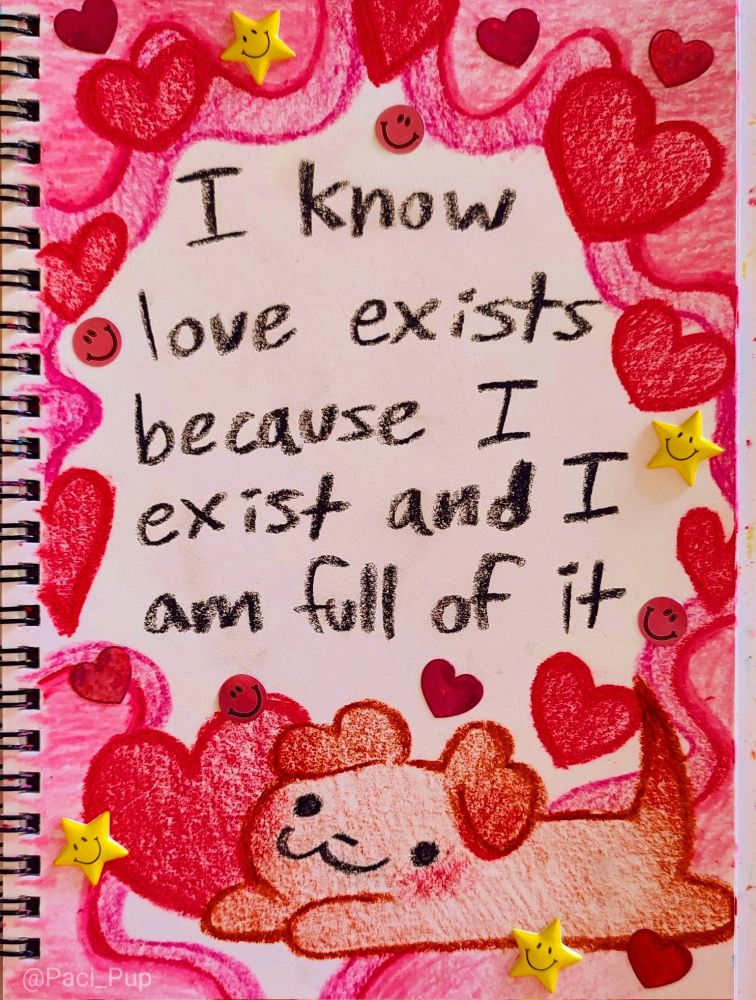 I know
love exists
because I
exist and I
am full of it
@Paci_Pup